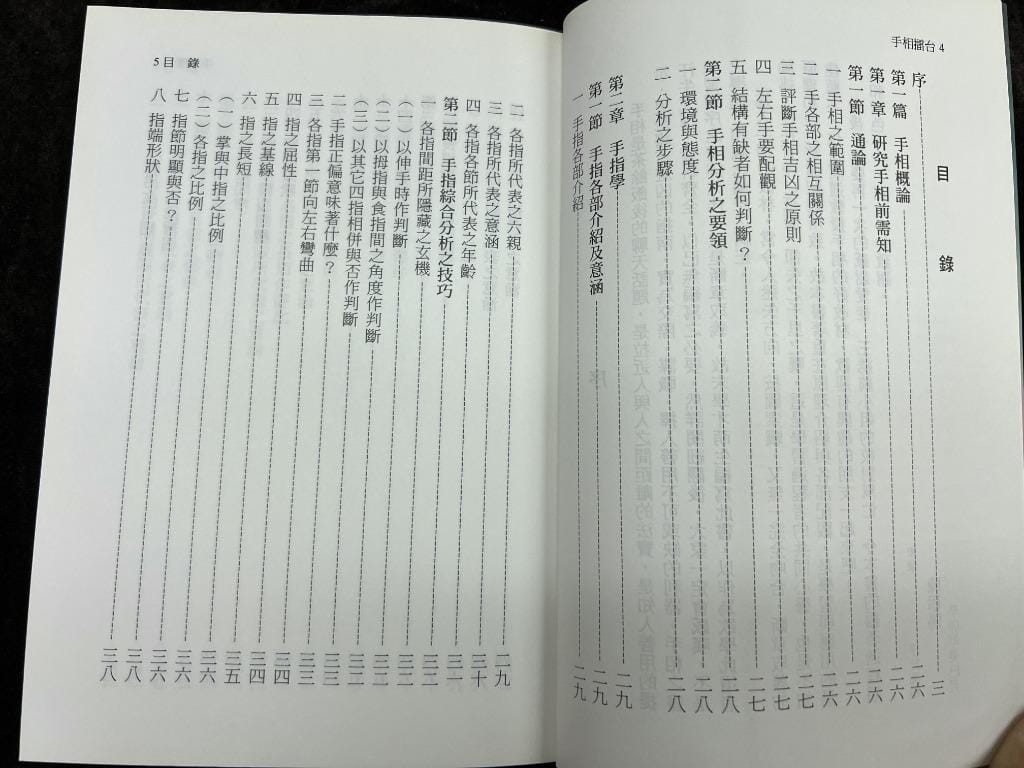 手相擂台 4
目 錄
序 三
第一篇 手相概論 二六
第一章 研究手相前需知 二六
第一節 通論 二六
一 手相之範圍 二六
二 手各部之相互關係 二六
三 評斷手相吉凶之原則 二七
四 左右手要配觀 二七
五 結構有缺者如何判斷？ 二七
第二節 手相分析之要領 二八
一 環境與態度 二八
二 分析之步驟 二八
第二章 手指學 二九
第一節 手指各部介紹及意涵 二九
一 手指各部介紹 二九
5 目 錄
二 各指所代表之六親 二九
三 各指所代表之意涵 三十
四 各指各節所代表之年齡 三十
第二節 手指綜合分析之技巧 三一
一 各指間距所隱藏之玄機 三一
（一）以伸手時作判斷 三二
（二）以拇指與食指間之角度作判斷 三二
（三）以其它四指相併與否作判斷 三二
二 手指正偏意味著什麼？ 三三
三 各指第一節向左右彎曲 三三
四 指之屈性 三四
五 指之基線 三四
六 指之長短 三五
（一）掌與中指之比例 三六
（二）各指之比例 三六
七 指節明顯與否？ 三六
八 指端形狀 三八